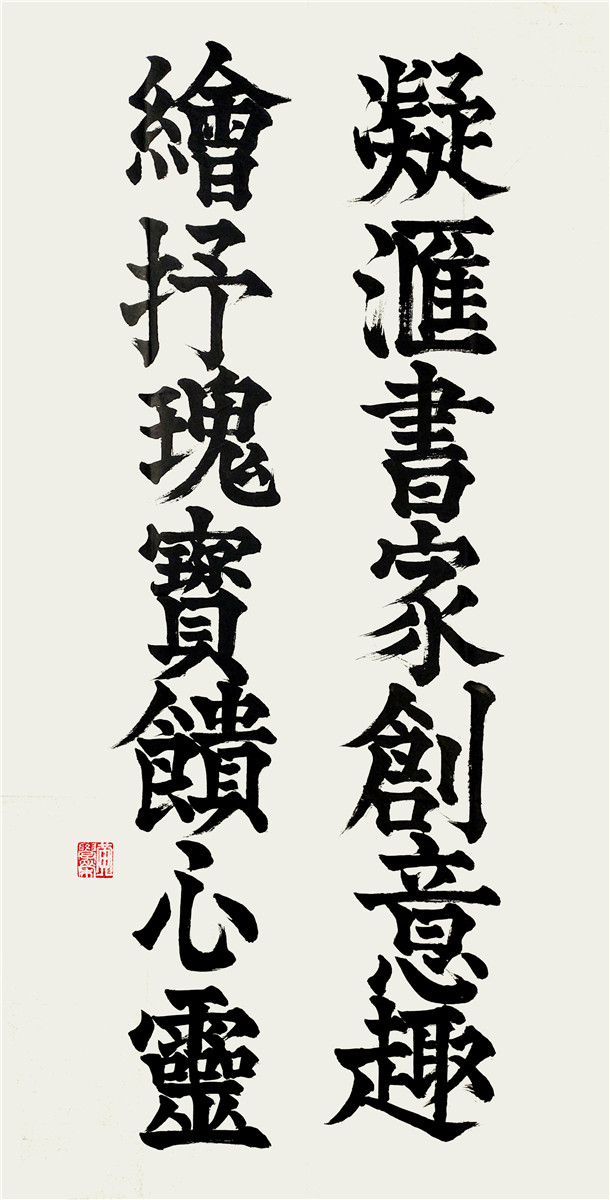 凝滙書家創意趣
繪抒瑰寶饋心靈